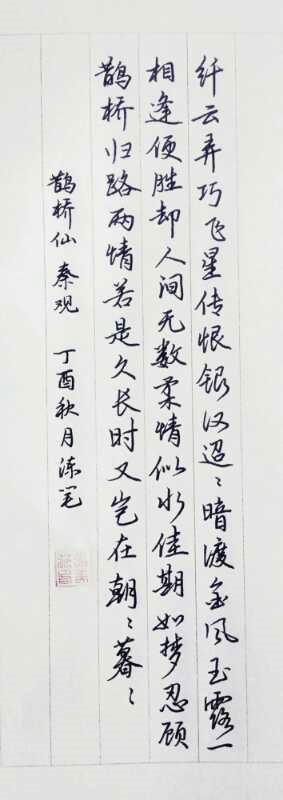 纤云弄巧飞星传恨银汉迢〻暗渡金风玉露一
相逢便胜却人间无数柔情似水佳期如梦忍顾
鹊桥归路两情若是久长时又岂在朝〻暮〻
鹊桥仙 秦观 丁酉秋月 涂笔